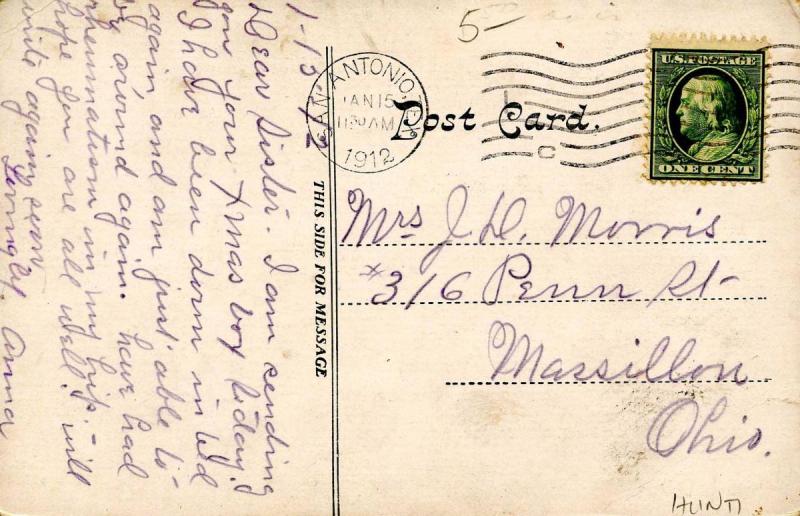 1-13-12
Dear Sister. I am sending
you your Xmas box today.
I have been down in bed
again and am just able to-
be around again. have had
rheumatism in my hip.
hope you are all well. will
write again soon
Lovingly Anna
THIS SIDE FOR MESSAGE
5-
SAN ANTONIO, TEX
JAN 15
1130 AM
1912
C
Post Card.
U.S. POSTAGE
ONE CENT
Mrs J. D. Morris
#316 Penn St-
Massillon
Ohio.
HUNTI